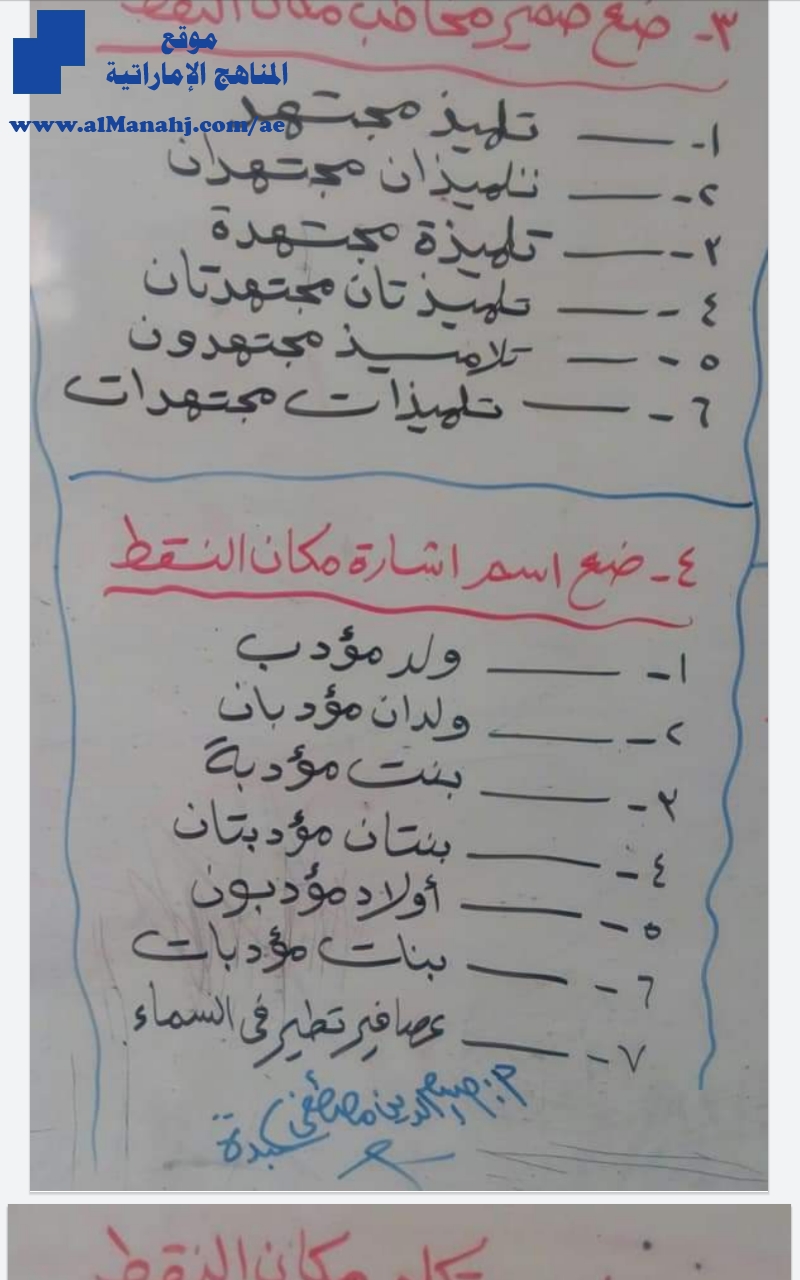 موقع
المناهج الإماراتية
www.alManahj.com/ae
٣- ضع ضمير مخاطب مكان النقط
١- ــــــ تلميذ مجتهد
٢- ــــــ تلميذان مجتهدان
٣- ــــــ تلميذة مجتهدة
٤- ــــــ تلميذتان مجتهدتان
٥- ــــــ تلاميذ مجتهدون
٦- ــــــ تلميذات مجتهدات
٤- ضع اسم اشارة مكان النقط
١- ــــــ ولد مؤدب
٢- ــــــ ولدان مؤدبان
٣- ــــــ بنت مؤدبة
٤- ــــــ بنتان مؤدبتان
٥- ــــــ أولاد مؤدبون
٦- ــــــ بنات مؤدبات
٧- ــــــ عصافير تطير في السماء
مصطفى
مكان النقط